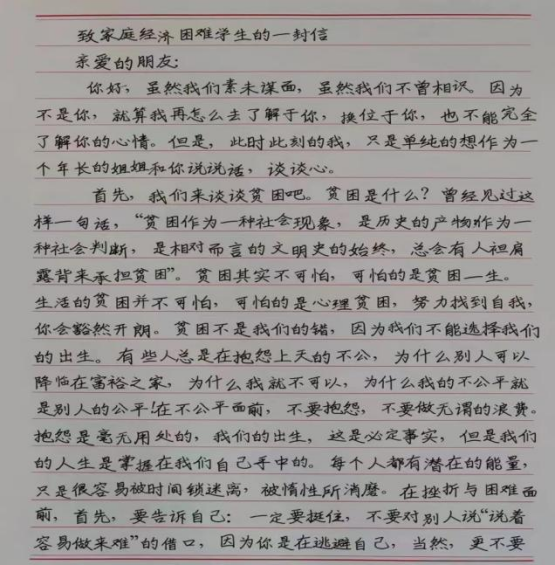 致家庭经济困难学生的一封信
亲爱的朋友:
你好,虽然我们素未谋面,虽然我们不曾相识。因为
不是你,就算我再怎么去了解于你,换位于你,也不能完全
了解你的心情。但是,此时此刻的我,只是单纯的想作为一
个年长的姐姐和你说说话,谈谈心。
首先,我们来谈谈贫困吧。贫困是什么?曾经见过这
样一句话,“贫困作为一种社会现象,是历史的产物作为一
种社会判断,是相对而言的文明史的始终,总会有人袒肩
露背来承担贫困”。贫困其实不可怕,可怕的是贫困一生。
生活的贫困并不可怕,可怕的是心理贫困,努力找到自我,
你会豁然开朗。贫困不是我们的错,因为我们不能选择我们
的出生。有些人总是在抱怨上天的不公,为什么别人可以
降临在富裕之家,为什么我就不可以,为什么我的不公平就
是别人的公平!在不公平面前,不要抱怨,不要做无谓的浪费。
抱怨是毫无用处的,我们的出生,这是必定事实,但是我们
的人生是掌握在我们自己手中的。每个人都有潜在的能量,
只是很容易被时间锁迷离,被惰性所消磨。在挫折与困难面
前,首先,要告诉自己:一定要挺住,不要对别人说“说着
容易做来难”的借口,因为你是在逃避自己,当然,更不要